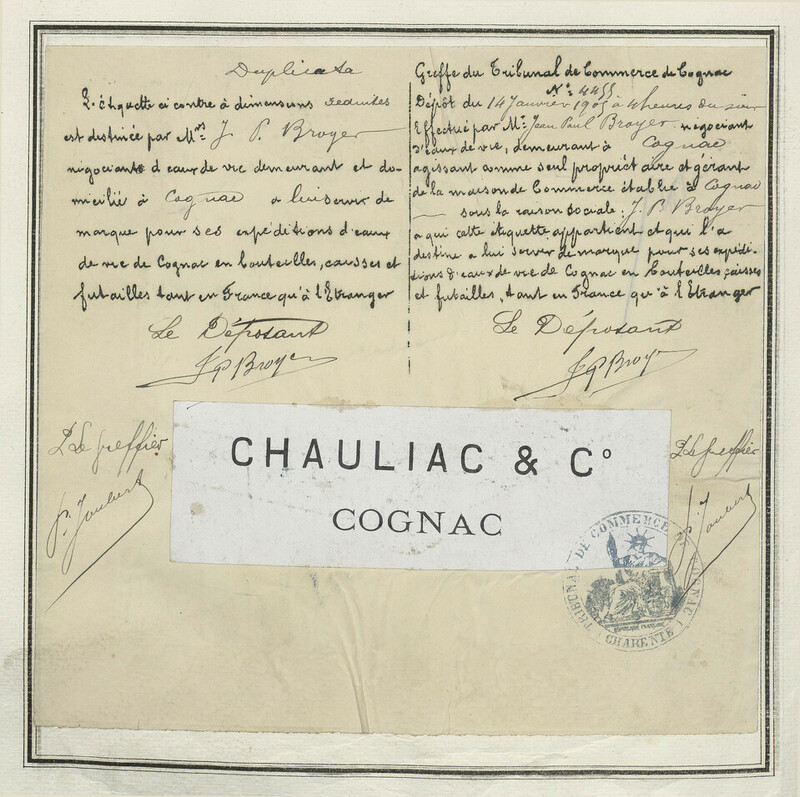 Duplicata
L'étiquette ci contre à dimensions réduites
est destinée par Mrs J. P. Broyer
négociant d'eaux de vie demeurant et do-
micilié à Cognac à lui servir de
marque pour ses expéditions d'eaux
de vie de Cognac en bouteilles, caisses et
futailles tant en France qu'à l'Etranger
Le Déposant
JP Broyer
Greffe du Tribunal de Commerce de Cognac
N°: 4455
Dépôt du 14 Janvier 1905 à 4 heures du soir
Effectué par Mr. Jean Paul Broyer négociant
d'eaux de vie, demeurant à Cognac
agissant comme seul propriétaire et gérant
de la maison de Commerce établie à Cognac
sous la raison sociale: J. P. Broyer
a qui cette étiquette appartient et qui l'a
destine a lui servir de marque pour ses expédi-
tions d'eaux de vie de Cognac en bouteilles, caisses
et futailles, tant en France qu'à l'Etranger
Le Déposant
JP Broyer
P. Le Greffier
P. Joubert
CHAULIAC & Co
COGNAC
P. Le Greffier
P. Joubert
TRIBUNAL DE COMMERCE DE COGNAC
CHARENTE